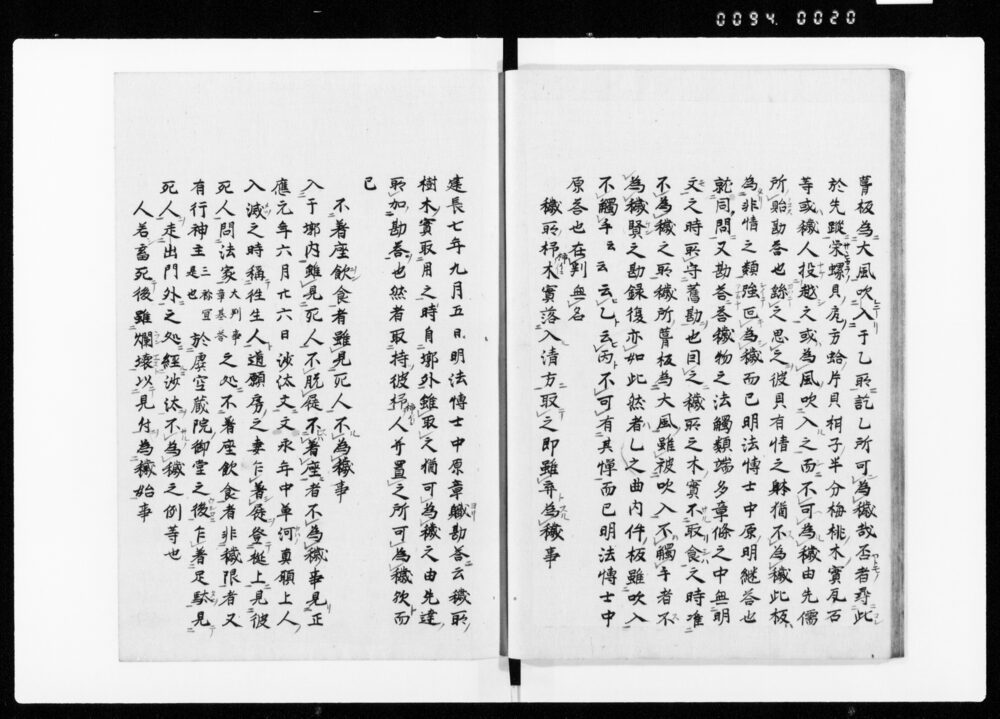 0094 0020
葺板為大風吹入于乙所訖乙所可為穢哉否者尋此
於先蹤栄螺貝虎方蛤片貝柑子半分梅桃木實瓦石
等或穢人投越之或為風吹入之而不可為穢由先儒
所貽勘答也䋣之思之彼貝有情之躰猶不為穢此板
為非情之類強叵為穢而已明法博士中原明継答也
就同問又勘答答穢物之法觸類端多章條之中無明
文之時所守舊勘也因之穢所之木實不取食之時准
不為穢之所穢所葺板為大風雖被吹入不觸手者不
為穢賢之勘録復亦如此然者乙之曲内件板雖吹入
不觸手云云乙云丙不可有其憚而已明法博士中
原答也在判無名
穢所柹木實落入清方取之即雖弃為穢事
建長七年九月五日明法博士中原章職勘答云穢所
樹木實取用之時自墎外雖取之猶可為穢之由先達
所加勘答也然者取持彼柹人并置之所可為穢欤而
已
不著座飲食者雖見死人不為穢事
入于墎内雖見死人不脱屣不著座者不為穢事見之正
應元年六月廿六日沙汰文文永年中單河真願上人
入滅之時稱徃生人道願房之妻乍著屣登梃上見彼
死人問法家大判事章基答之処不著座飲食者非穢限者又
有行神主三祢宜是也於虚空蔵院御堂之後乍著足駄見
死人走出門外之処經沙汰不為穢之例等也
人若畜死後雖爛壊以見付為穢始事